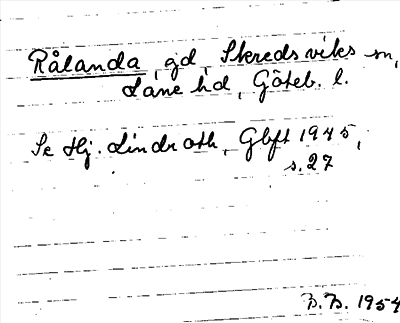 Rålanda, gd, Skredsviks sn,
Lane hd, Göteb. l.
Se Hj. Lindroth, Gbft 1945,
s. 27
B.B. 1954